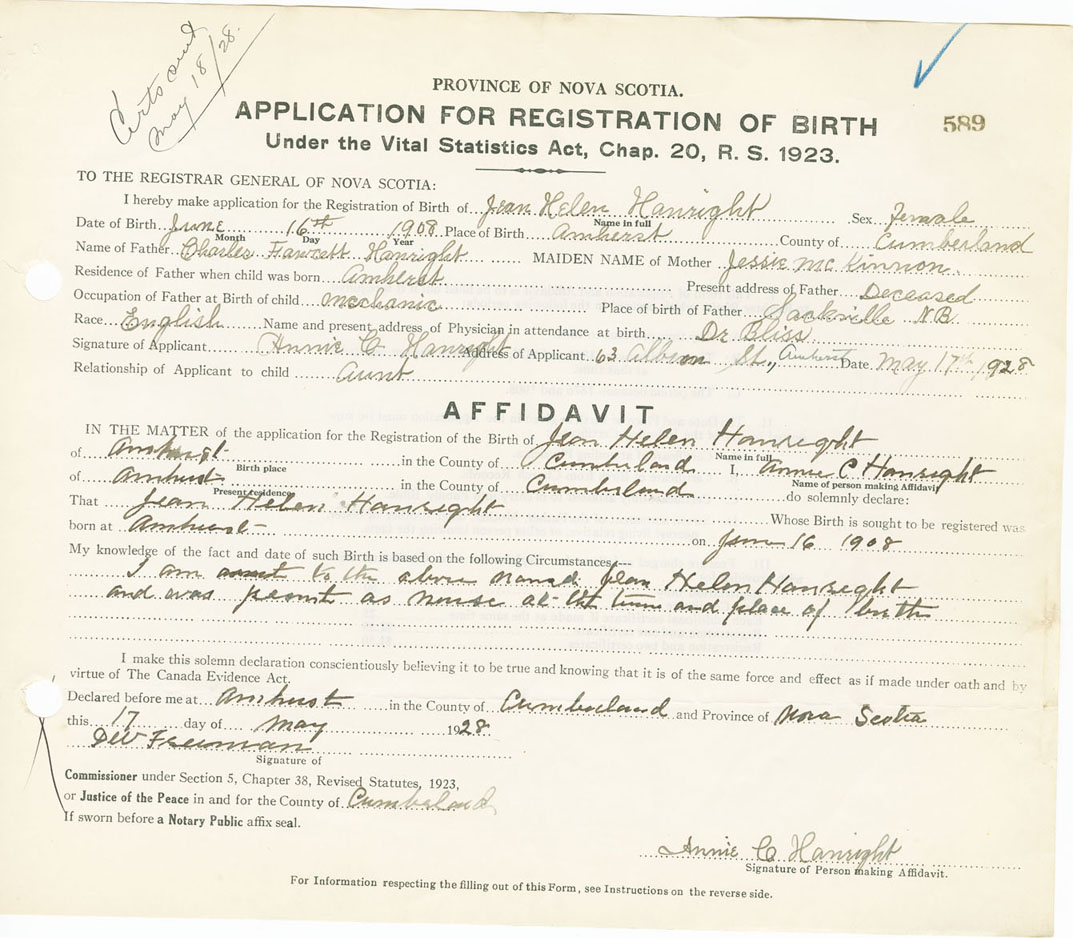 Certs out
May 18/28.
PROVINCE OF NOVA SCOTIA.
APPLICATION FOR REGISTRATION OF BIRTH
589
Under the Vital Statistics Act, Chap. 20, R. S. 1923.
TO THE REGISTRAR GENERAL OF NOVA SCOTIA:
I hereby make application for the Registration of Birth of Jean Helen Hanright Sex Female
Name in full
Date of Birth June 16th 1908 Place of Birth Amherst County of Cumberland
Month Day Year
Name of Father Charles Fawcett Hanright MAIDEN NAME of Mother Jessie McKinnon
Residence of Father when child was born Amherst Present address of Father Deceased
Occupation of Father at Birth of child mechanic Place of birth of Father Sackville N.B.
Race English Name and present address of Physician in attendance at birth Dr Bliss
Signature of Applicant Annie C Hanright Address of Applicant 63 Albion St., Amherst Date May 17th 1928
Relationship of Applicant to child Aunt
AFFIDAVIT
IN THE MATTER of the application for the Registration of the Birth of Jean Helen Hanright
Name in full
of Amherst in the County of Cumberland I, Annie C Hanright
Birth place Name of person making Affidavit
of Amherst in the County of Cumberland do solemnly declare:
Present residence
That Jean Helen Hanright Whose Birth is sought to be registered was
born at Amherst on June 16 1908
My knowledge of the fact and date of such Birth is based on the following Circumstances,---
I am aunt to the above named Jean Helen Hanright
and was present as nurse at the time and place of birth
I make this solemn declaration conscientiously believing it to be true and knowing that it is of the same force and effect as if made under oath and by
virtue of The Canada Evidence Act.
Declared before me at Amherst in the County of Cumberland and Province of Nova Scotia
this 17 day of May 1928
Freeman
Signature of
Commissioner under Section 5, Chapter 38, Revised Statutes, 1923,
or Justice of the Peace in and for the County of Cumberland
If sworn before a Notary Public affix seal.
Annie C Hanright
Signature of Person making Affidavit.
For Information respecting the filling out of this Form, see Instructions on the reverse side.